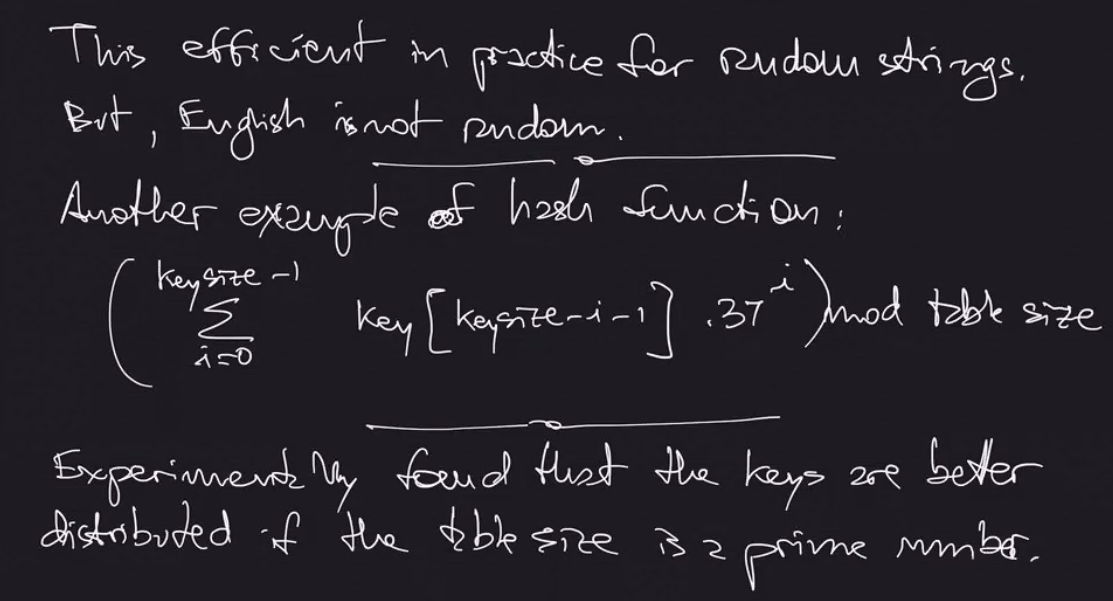 This efficient in practice for random strings.
But, English is not random.
Another example of hash function:
( keysize-1 Σ i=0 key[keysize-i-1] .37^i ) mod table size
Experimentally found that the keys are better
distributed if the table size is a prime number.